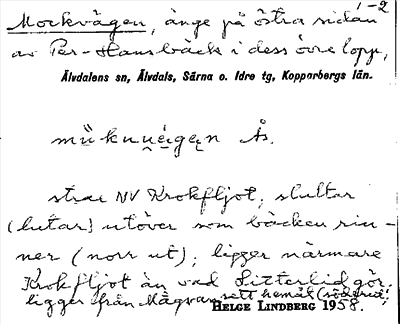 1-2
Mockvägen, änge på östra sidan
av Par-Hansbäck i dess övre lopp,
Älvdalens sn, Älvdals, Särna o. Idre tg, Kopparbergs län.
Ås.
strax NV Krokfljot; sluttar
(lutar) utöver som bäcken rin-
ner (norr ut); ligger närmare
Krokfljot än vad Litterlid gör.
ligger från sett hemåt
HELGE LINDBERG 1958.